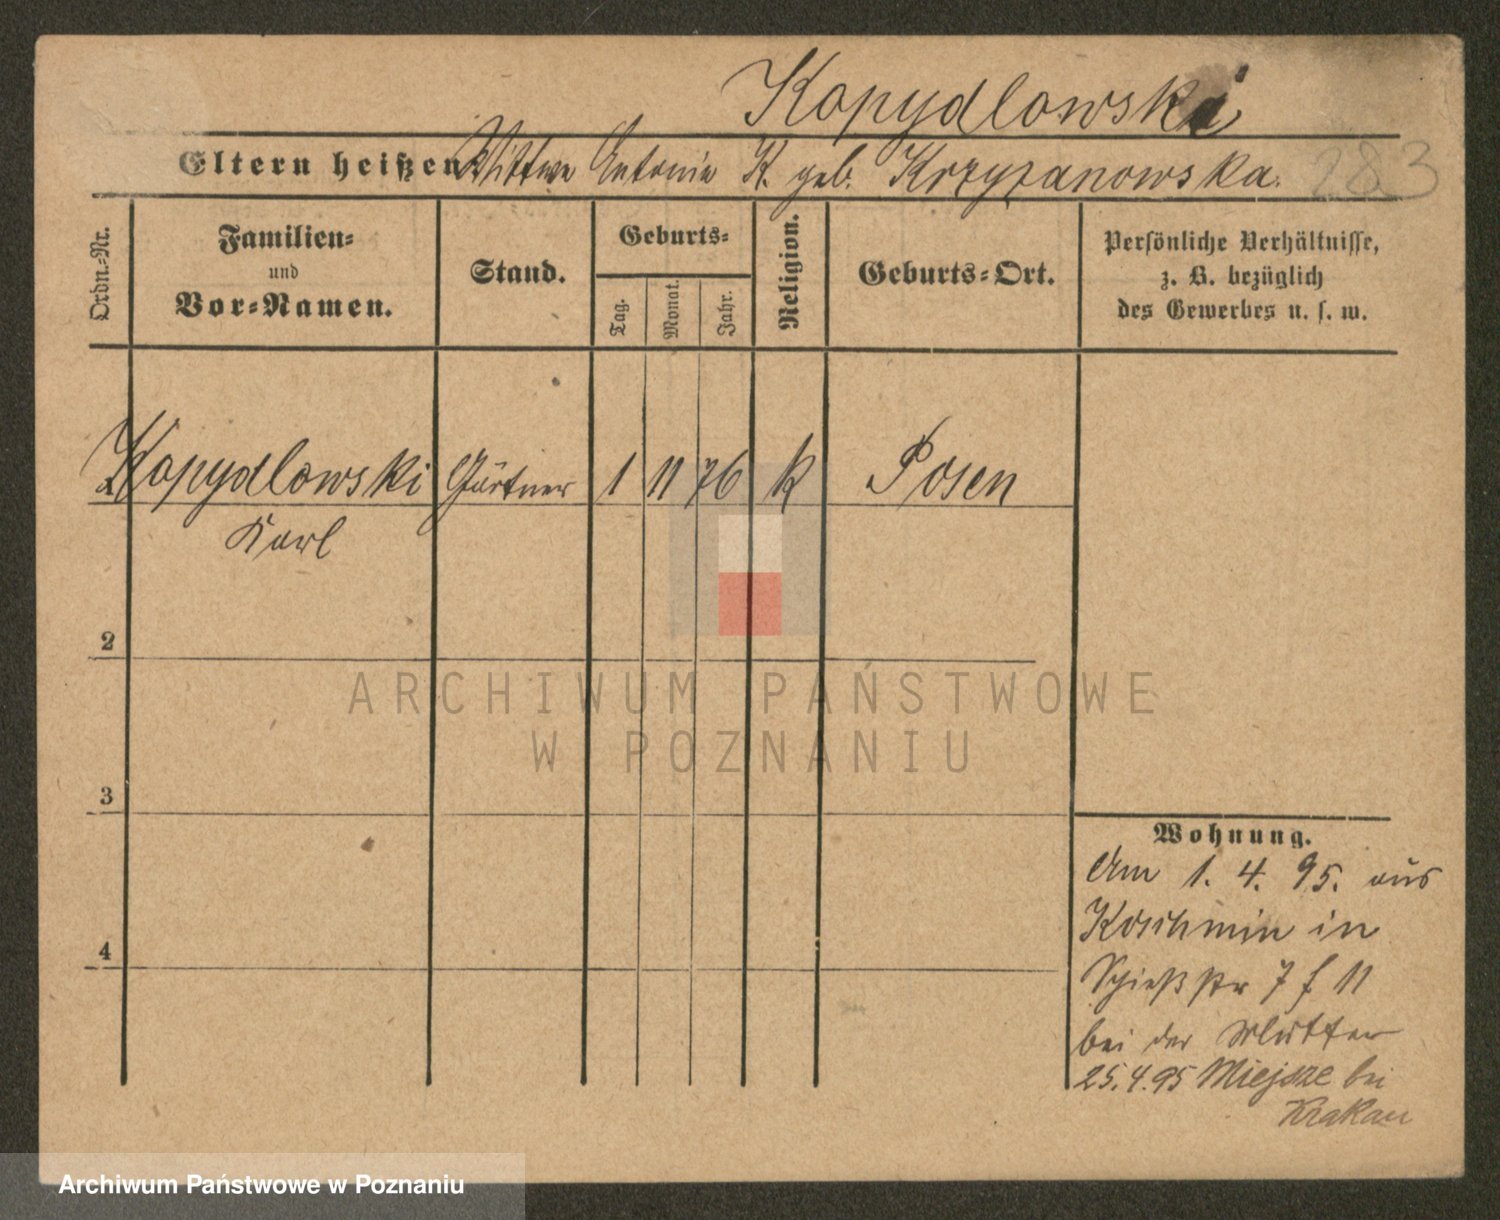 Kopydlowski
Eltern heißen Wittwe Antonie K. geb. Krzyzanowska.
283
Ordn.-Nr.
Familien-
und
Vor-Namen.
Stand.
Geburts-
Tag.
Monat.
Jahr.
Religion.
Geburts-Ort.
Persönliche Verhältnisse,
z. B. bezüglich
des Gewerbes u. s. w.
Kopydlowski Gärtner 1 11 76 k Posen
Karl
2
ARCHIWUM PAŃSTWOWE
W POZNANIU
3
4
Wohnung.
Am 1. 4. 95. aus
Koschmin in
Schießstr 7 f 11
bei der Mutter
25.4.95 Miejsze bei
Krakau
Archiwum Państwowe w Poznaniu